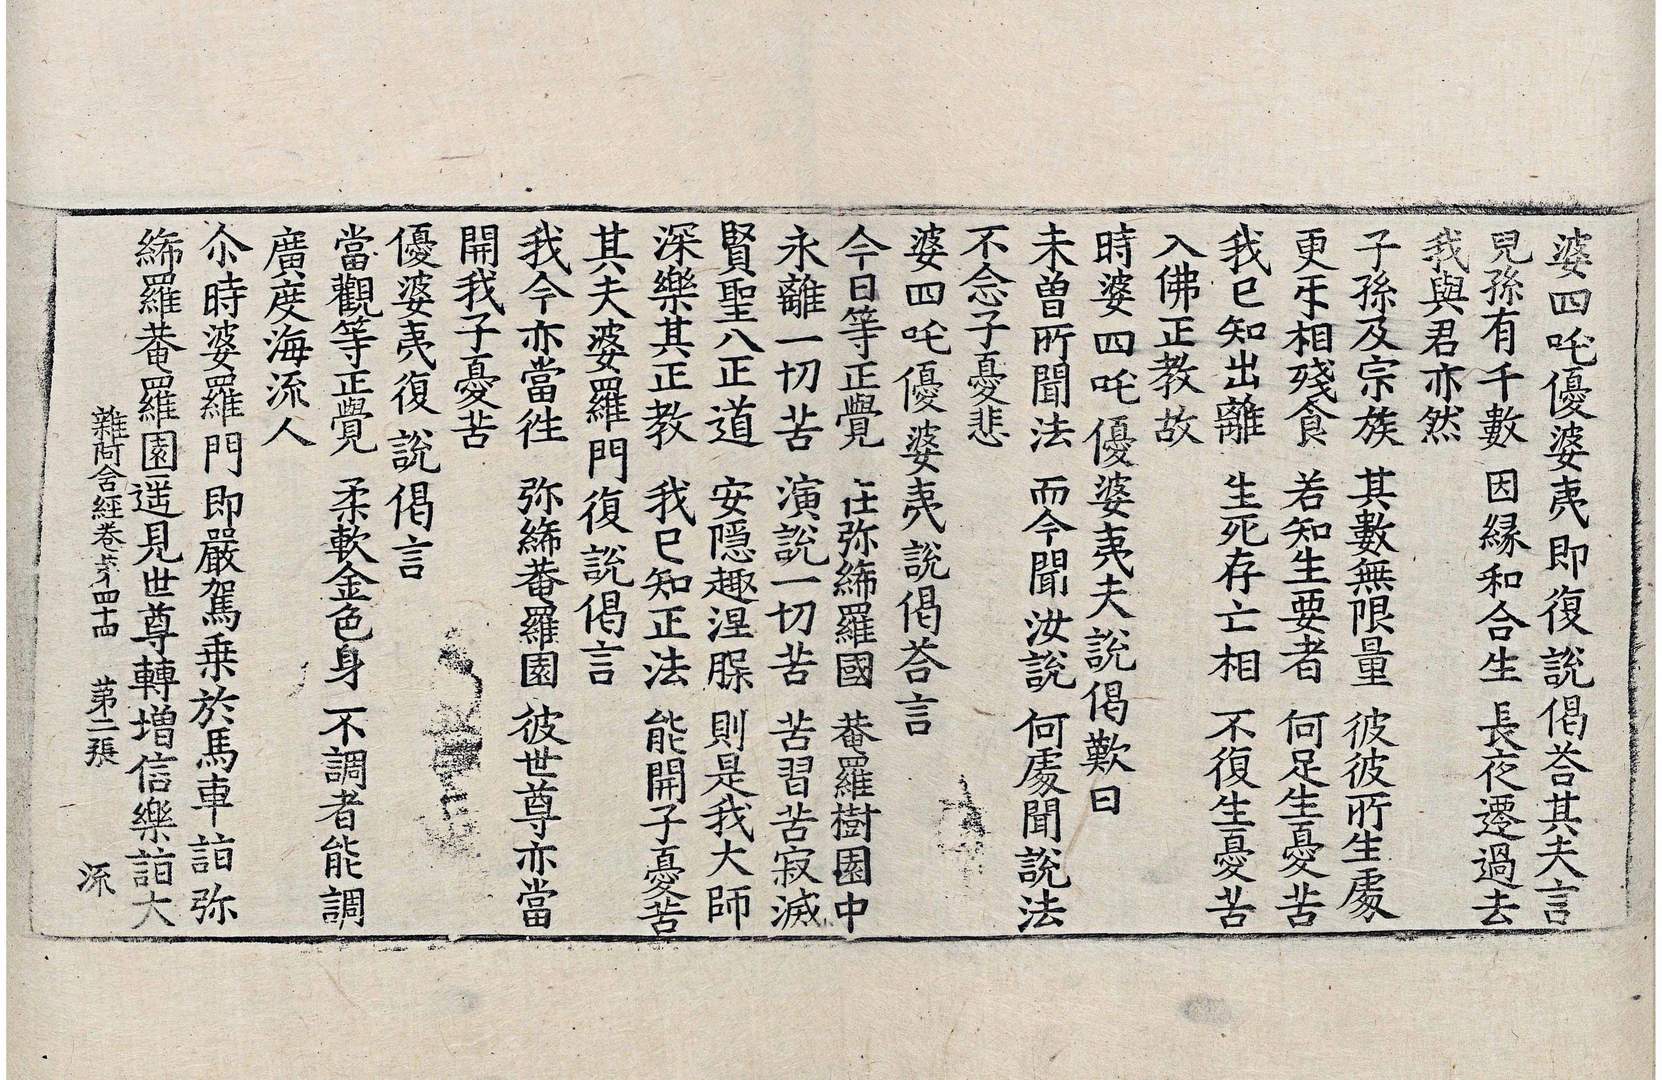 婆四吒優婆夷即復說偈荅其夫言
兒孫有千數 因緣和合生 長夜遷過去
我與君亦然
子孫及宗族 其數無限量 彼彼所生處
更互相殘食 若知生要者 何足生憂苦
我已知出離 生死存亡相 不復生憂苦
入佛正教故
時婆四吒優婆夷夫說偈歎曰
未曾所聞法 而今聞汝說 何處聞說法
不念子憂悲
婆四吒優婆夷說偈荅言
今日等正覺 在弥絺羅國 菴羅樹園中
永離一切苦 演說一切苦 苦習苦寂滅
賢聖八正道 安隱趣涅槃 則是我大師
深樂其正教 我已知正法 能開子憂苦
其夫婆羅門復說偈言
我今亦當往 弥絺菴羅園 彼世尊亦當
開我子憂苦
優婆夷復說偈言
當觀等正覺 柔軟金色身 不調者能調
廣度海流人
尒時婆羅門即嚴駕乗於馬車詣弥
絺羅菴羅園遥見世尊轉增信樂詣大
雜阿含經卷苐四十四 苐二張 流